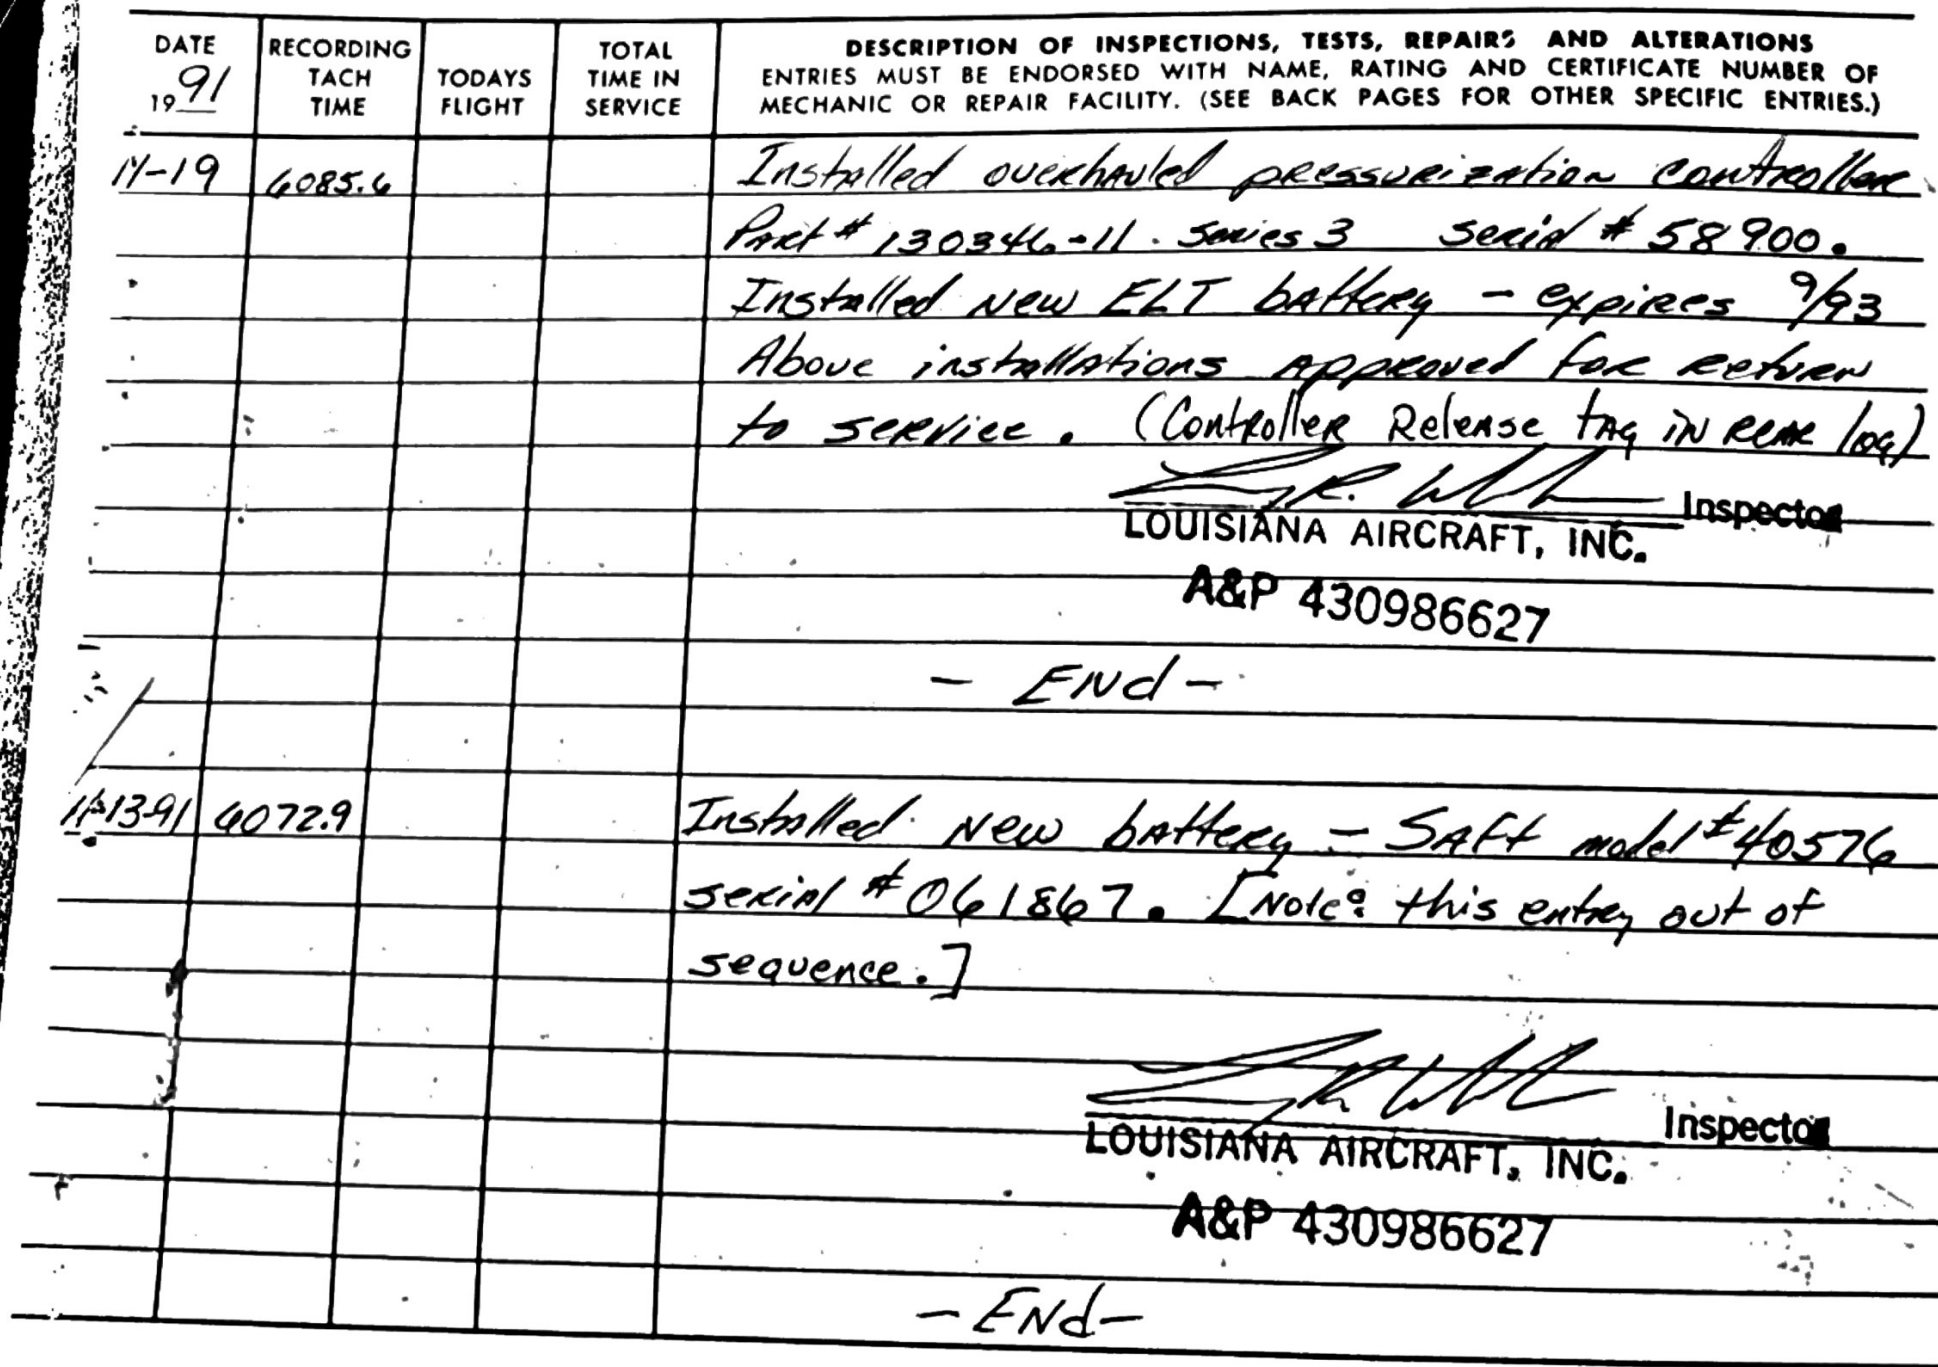 DATE
1991
RECORDING
TACH
TIME
TODAYS
FLIGHT
TOTAL
TIME IN
SERVICE
DESCRIPTION OF INSPECTIONS, TESTS, REPAIRS AND ALTERATIONS
ENTRIES MUST BE ENDORSED WITH NAME, RATING AND CERTIFICATE NUMBER OF
MECHANIC OR REPAIR FACILITY. (SEE BACK PAGES FOR OTHER SPECIFIC ENTRIES.)
11-19 6085.6 Installed overhauled pressurization controller
Part # 130346-11. Series 3 Serial # 58900.
Installed New ELT battery - expires 9/93
Above installations approved for return
to service. (Controller Release tag in rear log)
Inspector
LOUISIANA AIRCRAFT, INC.
A&P 430986627
- End -
11-13-91 6072.9 Installed New battery - SAFT model # 40576
serial # 061867. [Note: this entry out of
sequence.]
Inspector
LOUISIANA AIRCRAFT, INC.
A&P 430986627
- End -